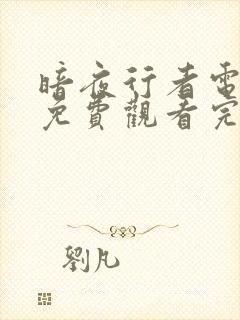 暗夜行者電
免費觀看完
劉凡